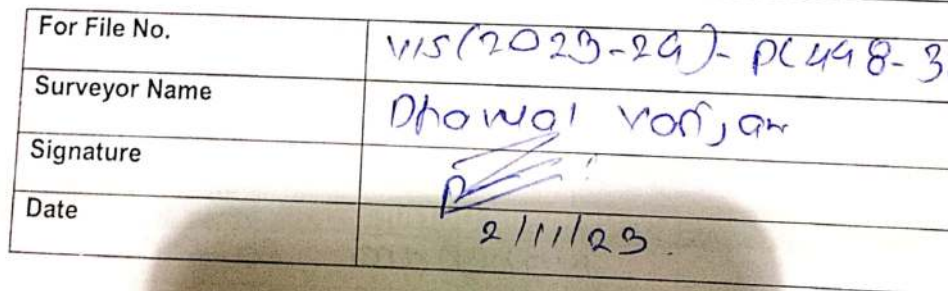 For File No. VIS(2023-24)-PL448-3
Surveyor Name Dhawal Vanjari
Signature
Date 2/11/23.